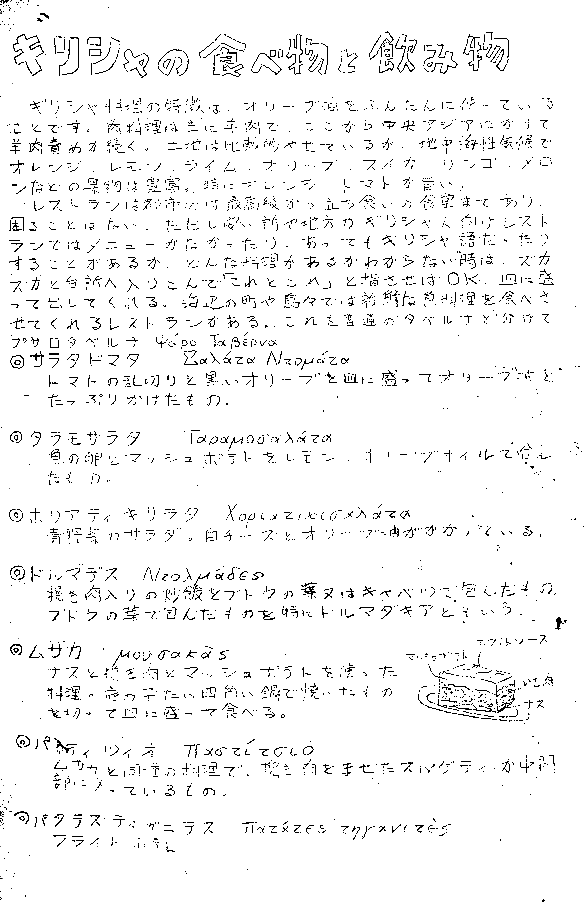 ギリシャの食べ物と飲み物
ギリシャ料理の特徴は、オリーブ油をふんだんに使っている
ことです。肉料理は主に羊肉で、ここから中央アジアにかけて
羊肉責めが続く。土地は比較的やせているが、地中海性気候で
オレンジ、レモン、ライム、オリーブ、スイカ、リンゴ、メロ
ンなどの果物は豊富。特にオレンジ、トマトが旨い。
レストランは都市では最高級から立ち食いの食堂まであり、
困ることはない。ただし安い所や地方のギリシャ人向けレスト
ランではメニューがなかったり、あってもギリシャ語だったり
することがあるが、どんな料理があるかわからない時は、ズカ
ズカと台所へ入りこんで「これとこれ」と指させばOK。皿に盛
って出してくれる。海辺の町や島々では新鮮な魚料理を食べさ
せてくれるレストランがある。これを普通のタベルナと分けて
プサロタベルナ Ψάρο Ταβέρνα
◎サラタドマタ Σαλάτα Ντομάτα
トマトの乱切りと黒いオリーブを皿に盛ってオリーブ油を
たっぷりかけたもの。
◎タラモサラタ Ταραμοσαλάτα
魚の卵とマッシュポテトをレモン、オリーブオイルで
たもの。
◎ホリアティキサラタ Χοριατικισαλάτα
青野菜のサラダ。白チーズとオリーブ油がかかっている。
◎ドルマデス Ντολμάδες
挽き肉入りの炒飯をブドウの葉又はキャベツで包んだもの。
ブドウの葉で包んだものを特にドルマダキアという。
◎ムサカ μουσακάς
ナスと挽き肉とマッシュポテトを使った
料理。底の平たい四角い鍋で焼いたもの
を切って皿に盛って食べる。
ホワイトソース
マッシュポテト
ひき肉
ナス
◎パスティツィオ Παστίτσιο
ムサカと同種の料理で、挽き肉をませたスパゲティが中間
部に入っているもの。
◎パタタス ティガニテス Πατάτες τηγανιτές
フライド